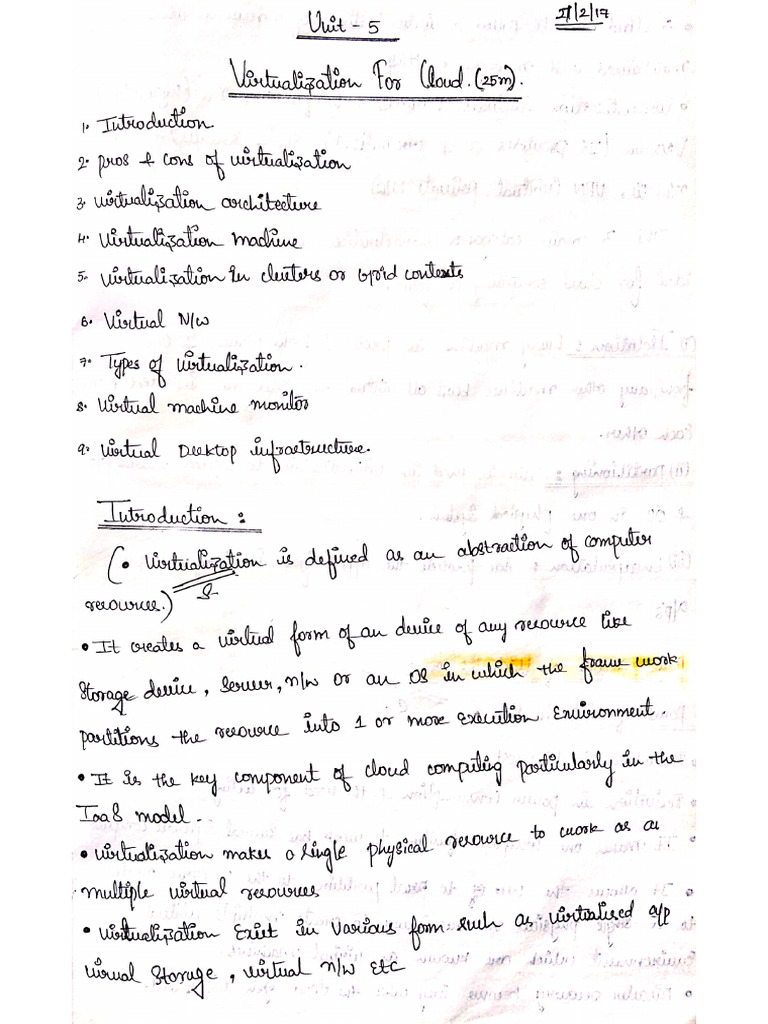 Unit - 5
21/2/17
Virtualization For Cloud. (25m).
1. Introduction
2. pros & cons of virtualization
3. virtualization architecture
4. Virtualization machine
5. virtualization in clusters or grid contexts
6. Virtual N/w
7. Types of virtualization.
8. Virtual machine monitor
9. Virtual Desktop infrastructure.
Introduction :
(• virtualization is defined as an abstraction of computer
resource.)
• It creates a virtual form of an device of any resource like
storage device, server, n/w or an OS in which the frame work
partitions the resource into 1 or more execution environment.
• It is the key component of cloud computing particularly in the
IaaS model.
• virtualization makes a single physical resource to work as a
multiple virtual resources
• virtualization exist in various form such as virtualised a/p
virual storage, virtual n/w etc